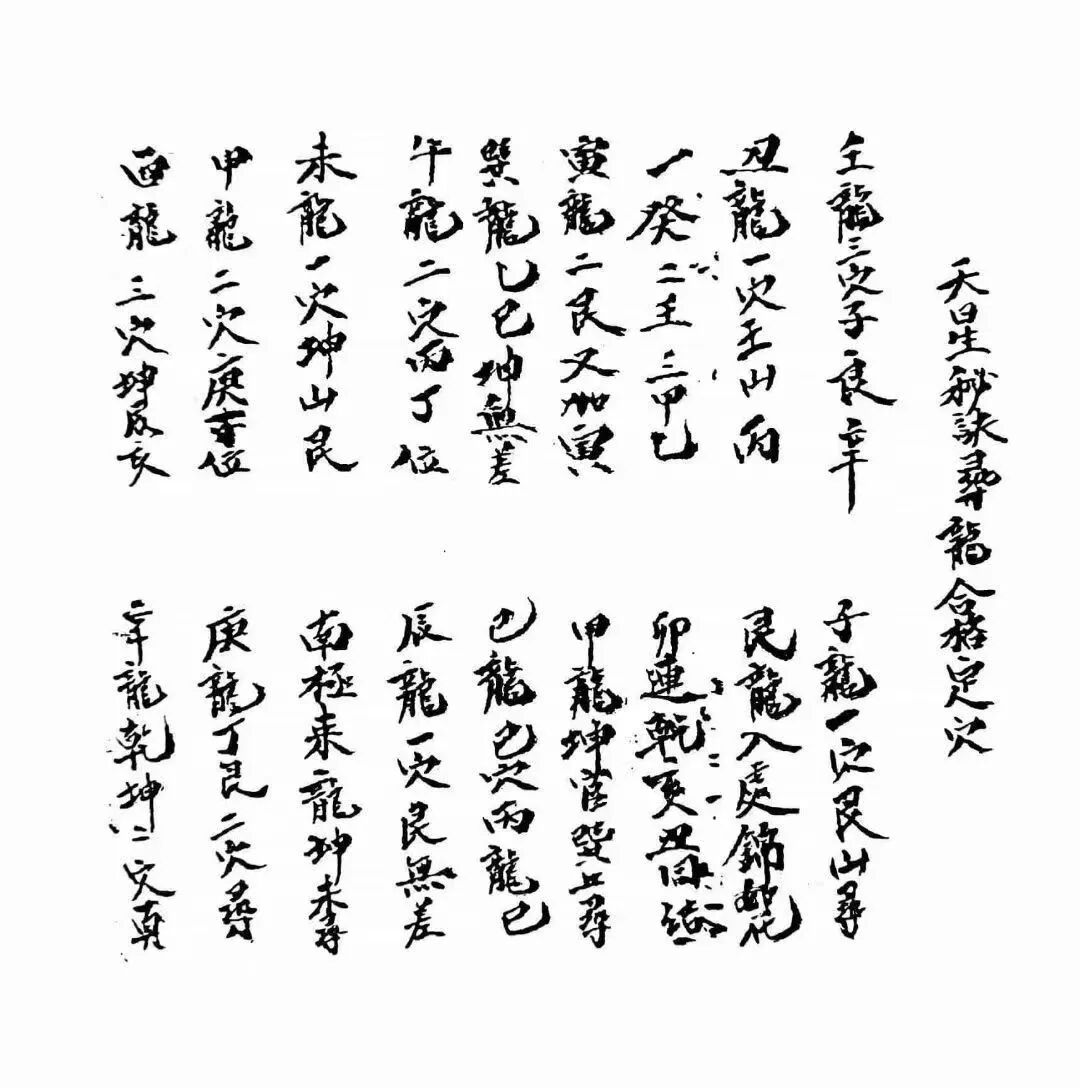 天星秘訣尋龍合格定穴
壬龍三穴子艮辛
子龍一穴艮山尋
丑龍一穴壬山丙
艮龍入處錦如花
一癸二壬三甲巳
卯連乾亥丑同
寅龍二艮又加寅
甲龍坤宮巽上尋
巽龍乙巳坤無差
巳龍巳穴丙龍巳
午龍二穴丙丁位
辰龍一穴艮無差
未龍一穴坤山艮
南極來龍坤未尋
申龍二穴庚位
庚龍丁艮二穴尋
酉龍三穴坤戌亥
辛龍乾坤二穴真